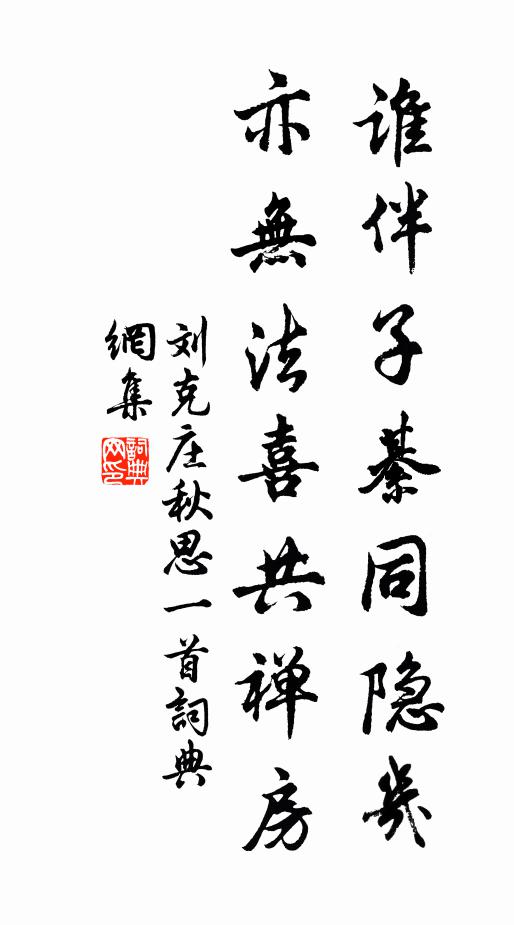 谁伴子綦同隐几
亦無法喜共禅房
刘克庄秋思一首詞典
網集
詞典网印